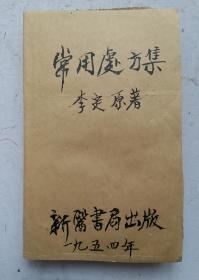 常用處方集
李定 原著
新醫書局出版
一九五四年